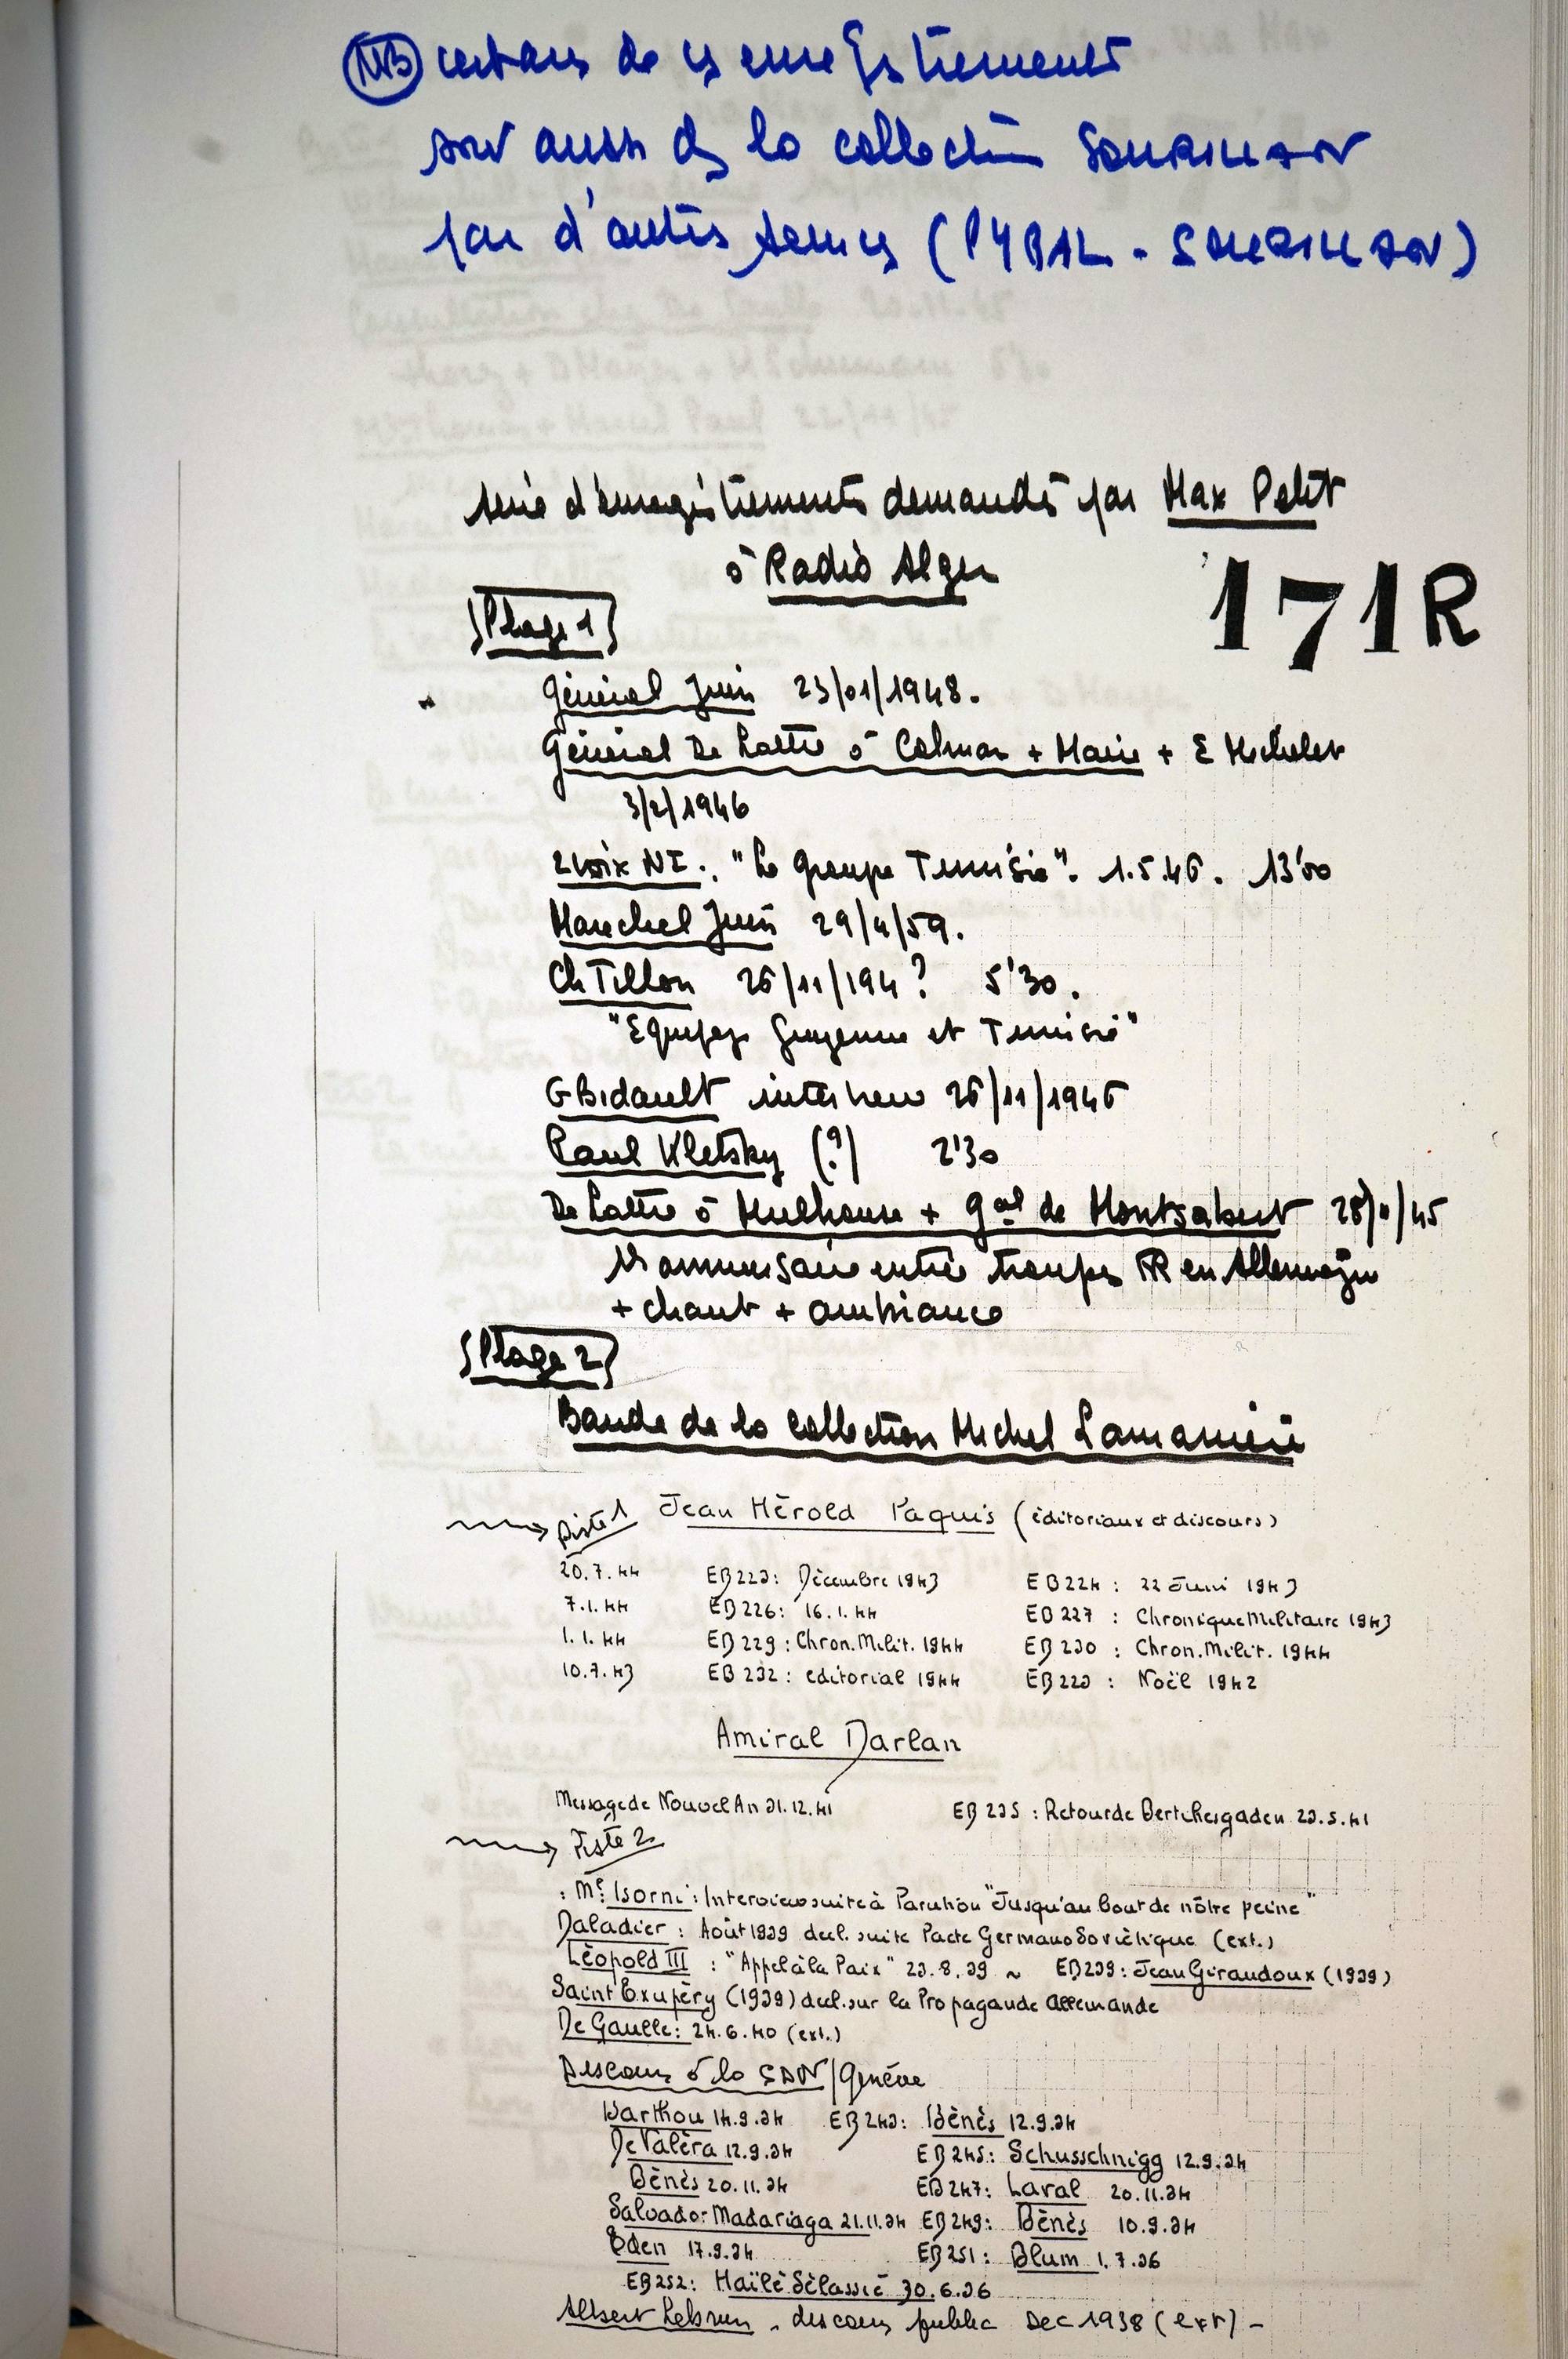 NB certains de ces enregistrements
sont aussi ds la collection SOURILLAN
par d'autres services (PYRAL - SOURILLAN)
Série d'enregistrements demandés par Max Petit
à Radio Alger
171R
Plage 1
Général Juin 23/01/1948.
Général De Lattre à Colmar + Maire + E Michelet
3/2/1946
2 voix NI. "Le groupe Tunisie". 1.5.46. 13'00
Marechel Juin 29/4/59.
Ch Tillon 26/11/194? 5'30.
"Equipage Guyenne et Tunisie"
G Bidault interview 26/11/1946
Paul Kletsky (?) 2'30
De Lattre à Mulhouse + Gal de Montsabert 28/11/45
1er anniversaire entrée troupes FR en Allemagne
+ chant + ambiance
Plage 2
Bande de la collection Michel Lamarinière
Piste 1 Jean Hérold Paquis (éditoriaux et discours)
20.7.44 EB223: Décembre 1943 EB224: 22 Juin 1943
7.1.44 EB226: 16.1.44 EB227: Chronique Militaire 1943
1.1.44 EB229: Chron. Milit. 1944 EB230: Chron. Milit. 1944
10.7.43 EB232: editorial 1944 EB223: Noël 1942
Amiral Darlan
Message de Nouvel An 31.12.41 EB235: Retour de Bertchesgaden 23.5.41
Piste 2
: Me Isorni: Interview suite à Parution "Jusqu'au bout de nôtre peine"
Daladier: Août 1939 decl. suite Pacte Germano Soviétique (ext.)
Léopold III: "Appel à la Paix" 23.8.39 ~ EB239: Jean Giraudoux (1939)
Saint Exupéry (1939) decl. sur la Propagande Allemande
De Gaulle: 24.6.40 (ext.)
Discours à la SDN/Genève
Barthou 14.9.34 EB243: Bénès 12.9.34
De Valéra 12.9.34 EB245: Schusschnigg 12.9.34
Bénès 20.11.34 EB247: Laval 20.11.34
Salvador Madariaga 21.11.34 EB249: Bénès 10.9.34
Eden 17.9.34 EB251: Blum 1.7.36
EB252: Haïlé Sélassié 30.6.36
Albert Lebrun - discours public Dec 1938 (ext) -